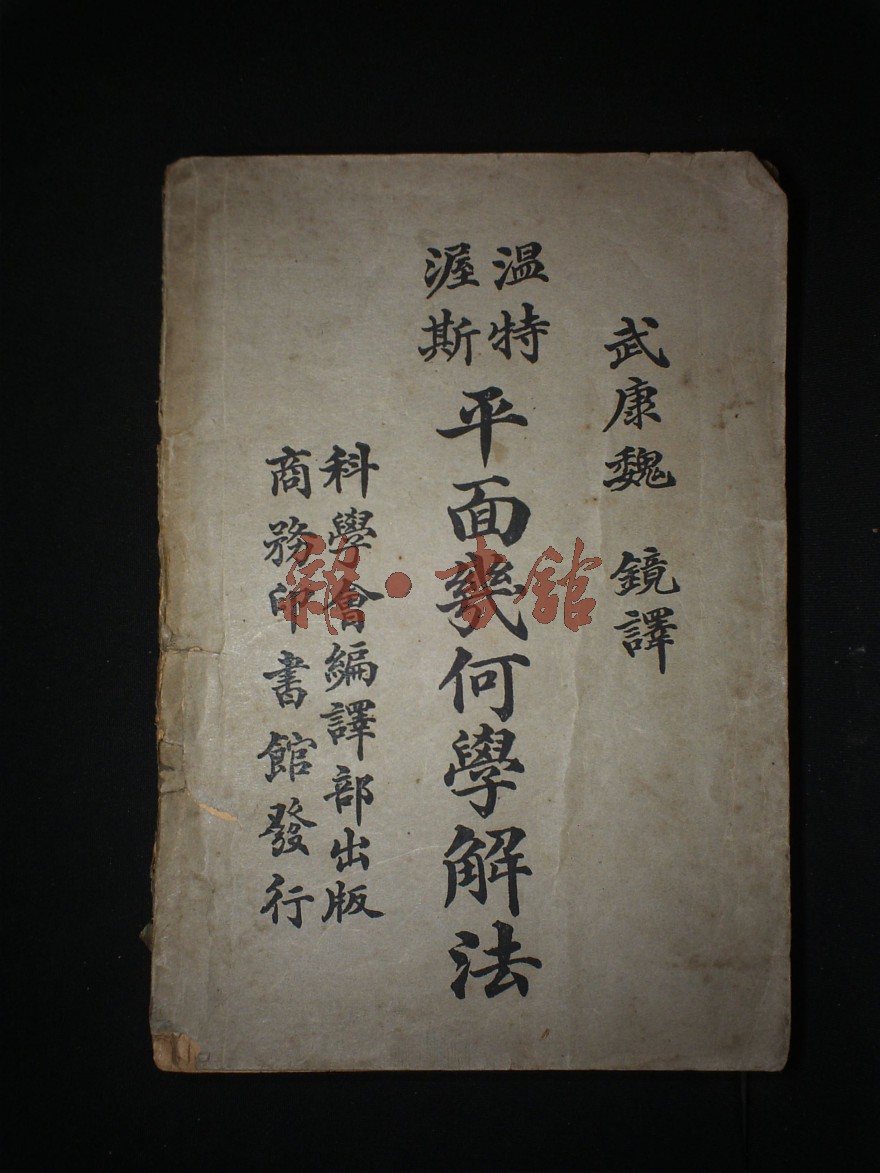 武康魏 鏡譯
溫特
渥斯
平面幾何學解法
科學會編譯部出版
商務印書館發行